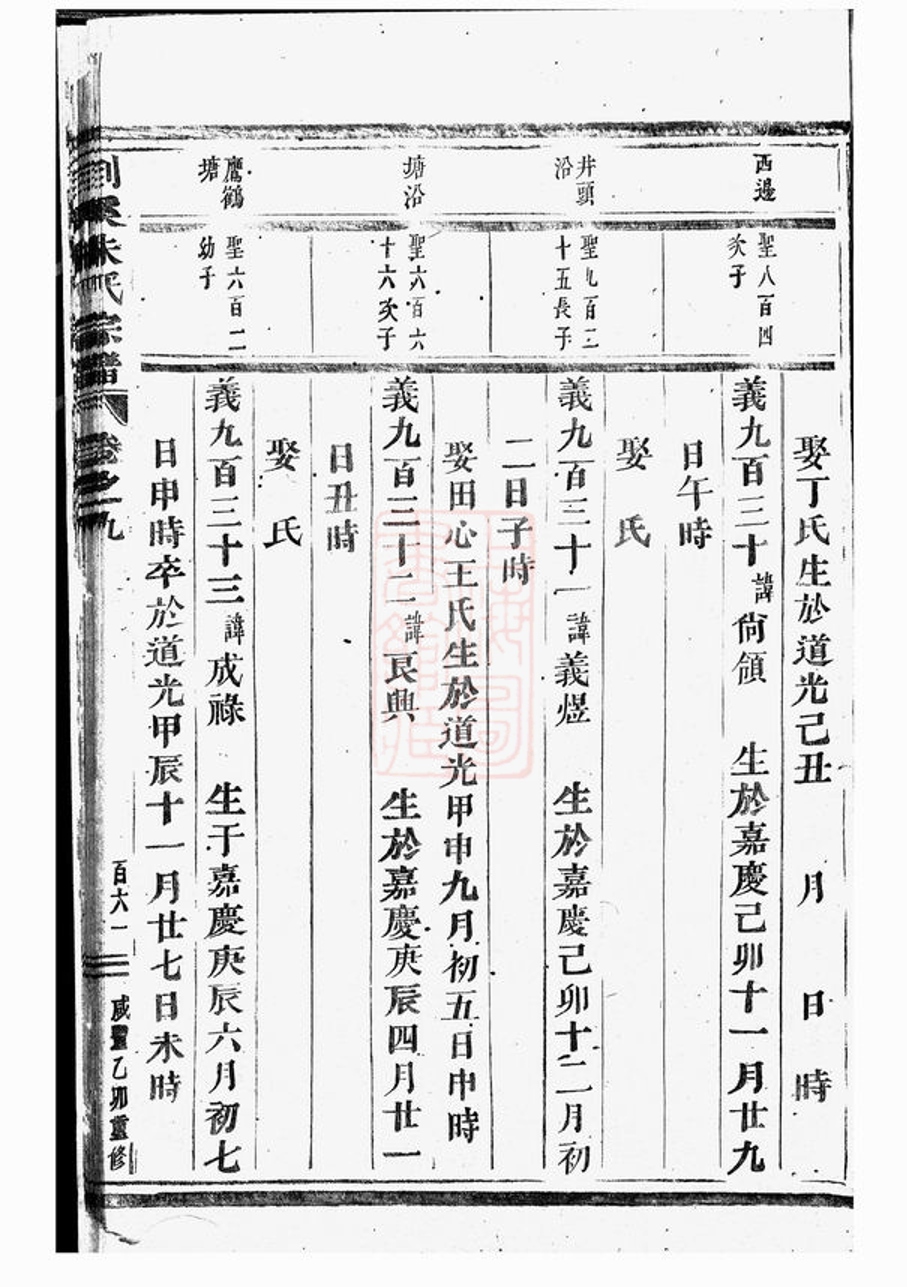 娶丁氏生於道光己丑　月　日　時
西邊
聖八百四
次子
義九百三十諱尙頒　生於嘉慶己卯十一月廿九
日午時
娶　氏
井頭
沿
聖九百二
十五長子
義九百三十一諱義煜　生於嘉慶己卯十二月初
二日子時
娶田心王氏生於道光甲申九月初五日申時
塘沿
聖六百六
十六次子
義九百三十二諱良興　生於嘉慶庚辰四月廿一
日丑時
娶　氏
鷹鶴
塘
聖六百二
幼子
義九百三十三諱成祿　生于嘉慶庚辰六月初七
日申時卒於道光甲辰十一月廿七日未時
朱氏宗譜
卷之九
百六一
咸豐乙卯重修